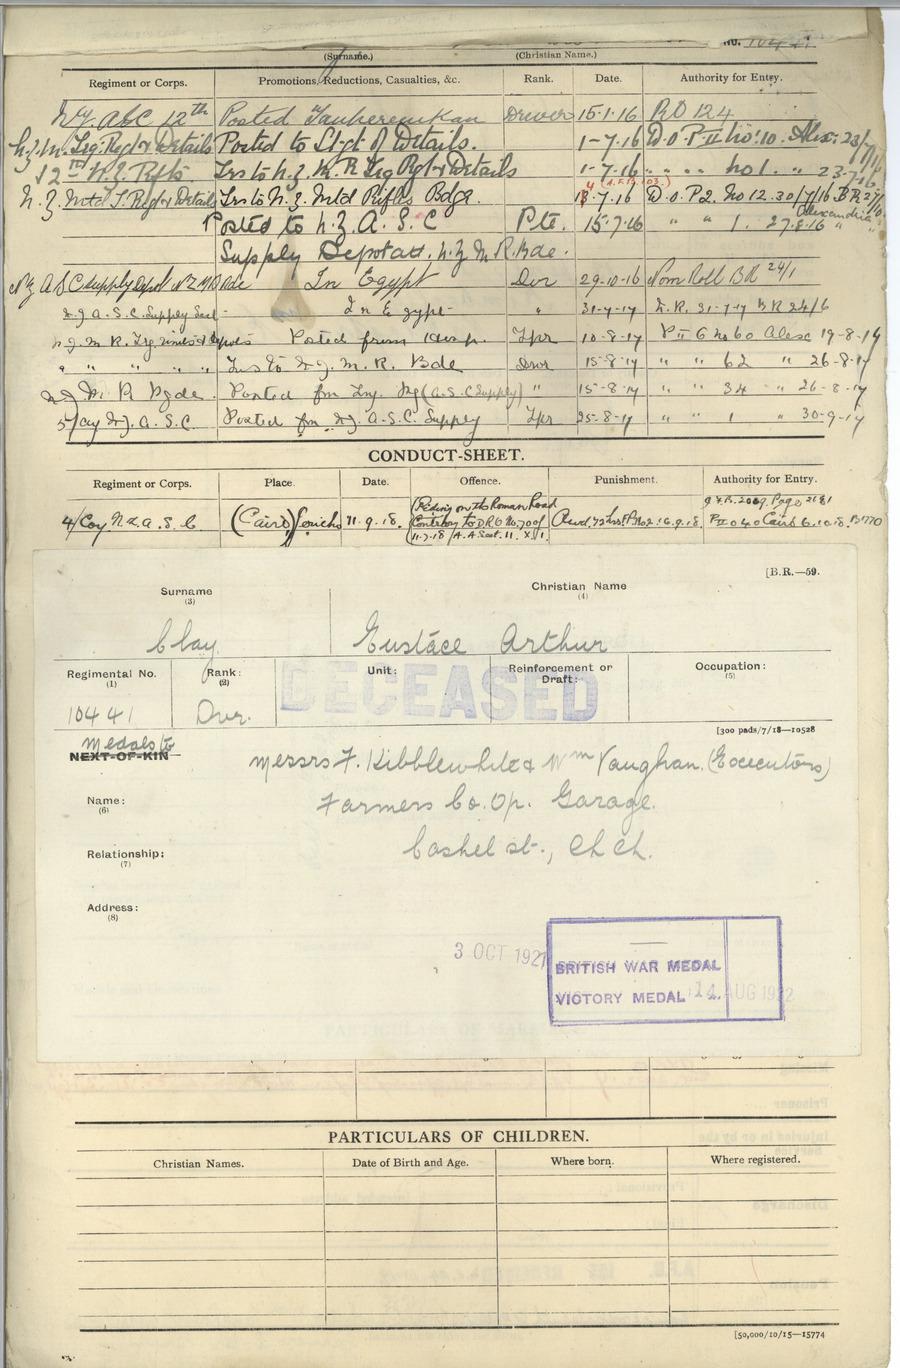 No. 10441
(Surname.) (Christian Name.)
Regiment or Corps. Promotions, Reductions, Casualties, &c. Rank. Date. Authority for Entry.
ASC 12th Posted Driver 15-1-16 RO 124
N.Z.M. Trg. Regt & Details Posted to Details. 1-7-16 D.O. P II No: 10. Alex: 23/7/16
12th N.Z. Rfts Trs to N.Z. M. R Trg Rgt & Details 1-7-16 " " " No 1. " 23-7-16
N.Z. Mtd T. Rgt & Details Trs to N.Z. Mtd Rifles Bdge. -7-16 D.O. P2. No 12. 30/7/16 BR
(A.F.B. 103.)
Posted to N.Z. A. S. C Pte. 15-7-16 " " 1. 27.8.16 Alexandria
Supply Depot att. N.Z M R. Bde.
N.Z A S C Supply Depot NZMR Bde In Egypt Dvr 29-10-16 Nom Roll BR 24/1
N.Z A. S.C. Supply Sect - In Egypt - " 31-7-17 N. R. 31-7-17 BR 24/6
N.Z M R. Trg Units & Depots Posted from Tpr 10-8-17 P II 6 No 60 Alex 19-8-17
" " " " " Trs to N.Z. M. R. Bde Dvr 15-8-17 " " 62 " 26-8-17
N.Z. M. R Bgde. Posted fm Trg. (A.S.C Supply) " 15-8-17 " " 34 " 26-8-17
5/Coy N.Z. A. S. C Posted fm N.Z. A.S.C. Supply Tpr 25-8-17 " " 1 " 30-9-17
CONDUCT-SHEET.
Regiment or Corps. Place. Date. Offence. Punishment. Authority for Entry.
4/Coy N.Z. A. S. C (Cairo) Jericho 11.9.18. Riding on the Roman Road
Contrary to D.R.O No. 700 of
11-7-18 A.A Sect. 11. X 1. Awd. 72 hrs F.P. No 2. 16.9.18. B.209. Page 2181
P II O 40 Cairo 6.10.18. B1770
[B.R.—59.
Surname
(3)
Christian Name
(4)
Clay Eustace Arthur
Regimental No.
(1)
Rank:
(2)
Unit: Reinforcement or
Draft:
Occupation:
(5)
DECEASED
10441 Dvr.
[300 pads/7/18—10528
Medals to
NEXT-OF-KIN
Messrs F. Kibblewhite & Wm Vaughan. (Executors)
Name:
(6)
Farmers Co. Op. Garage.
Relationship:
(7)
Cashel st., Ch Ch.
Address:
(8)
3 OCT 1921
BRITISH WAR MEDAL
VICTORY MEDAL 14 AUG 1922
PARTICULARS OF CHILDREN.
Christian Names. Date of Birth and Age. Where born. Where registered.
[50,000/10/15—15774